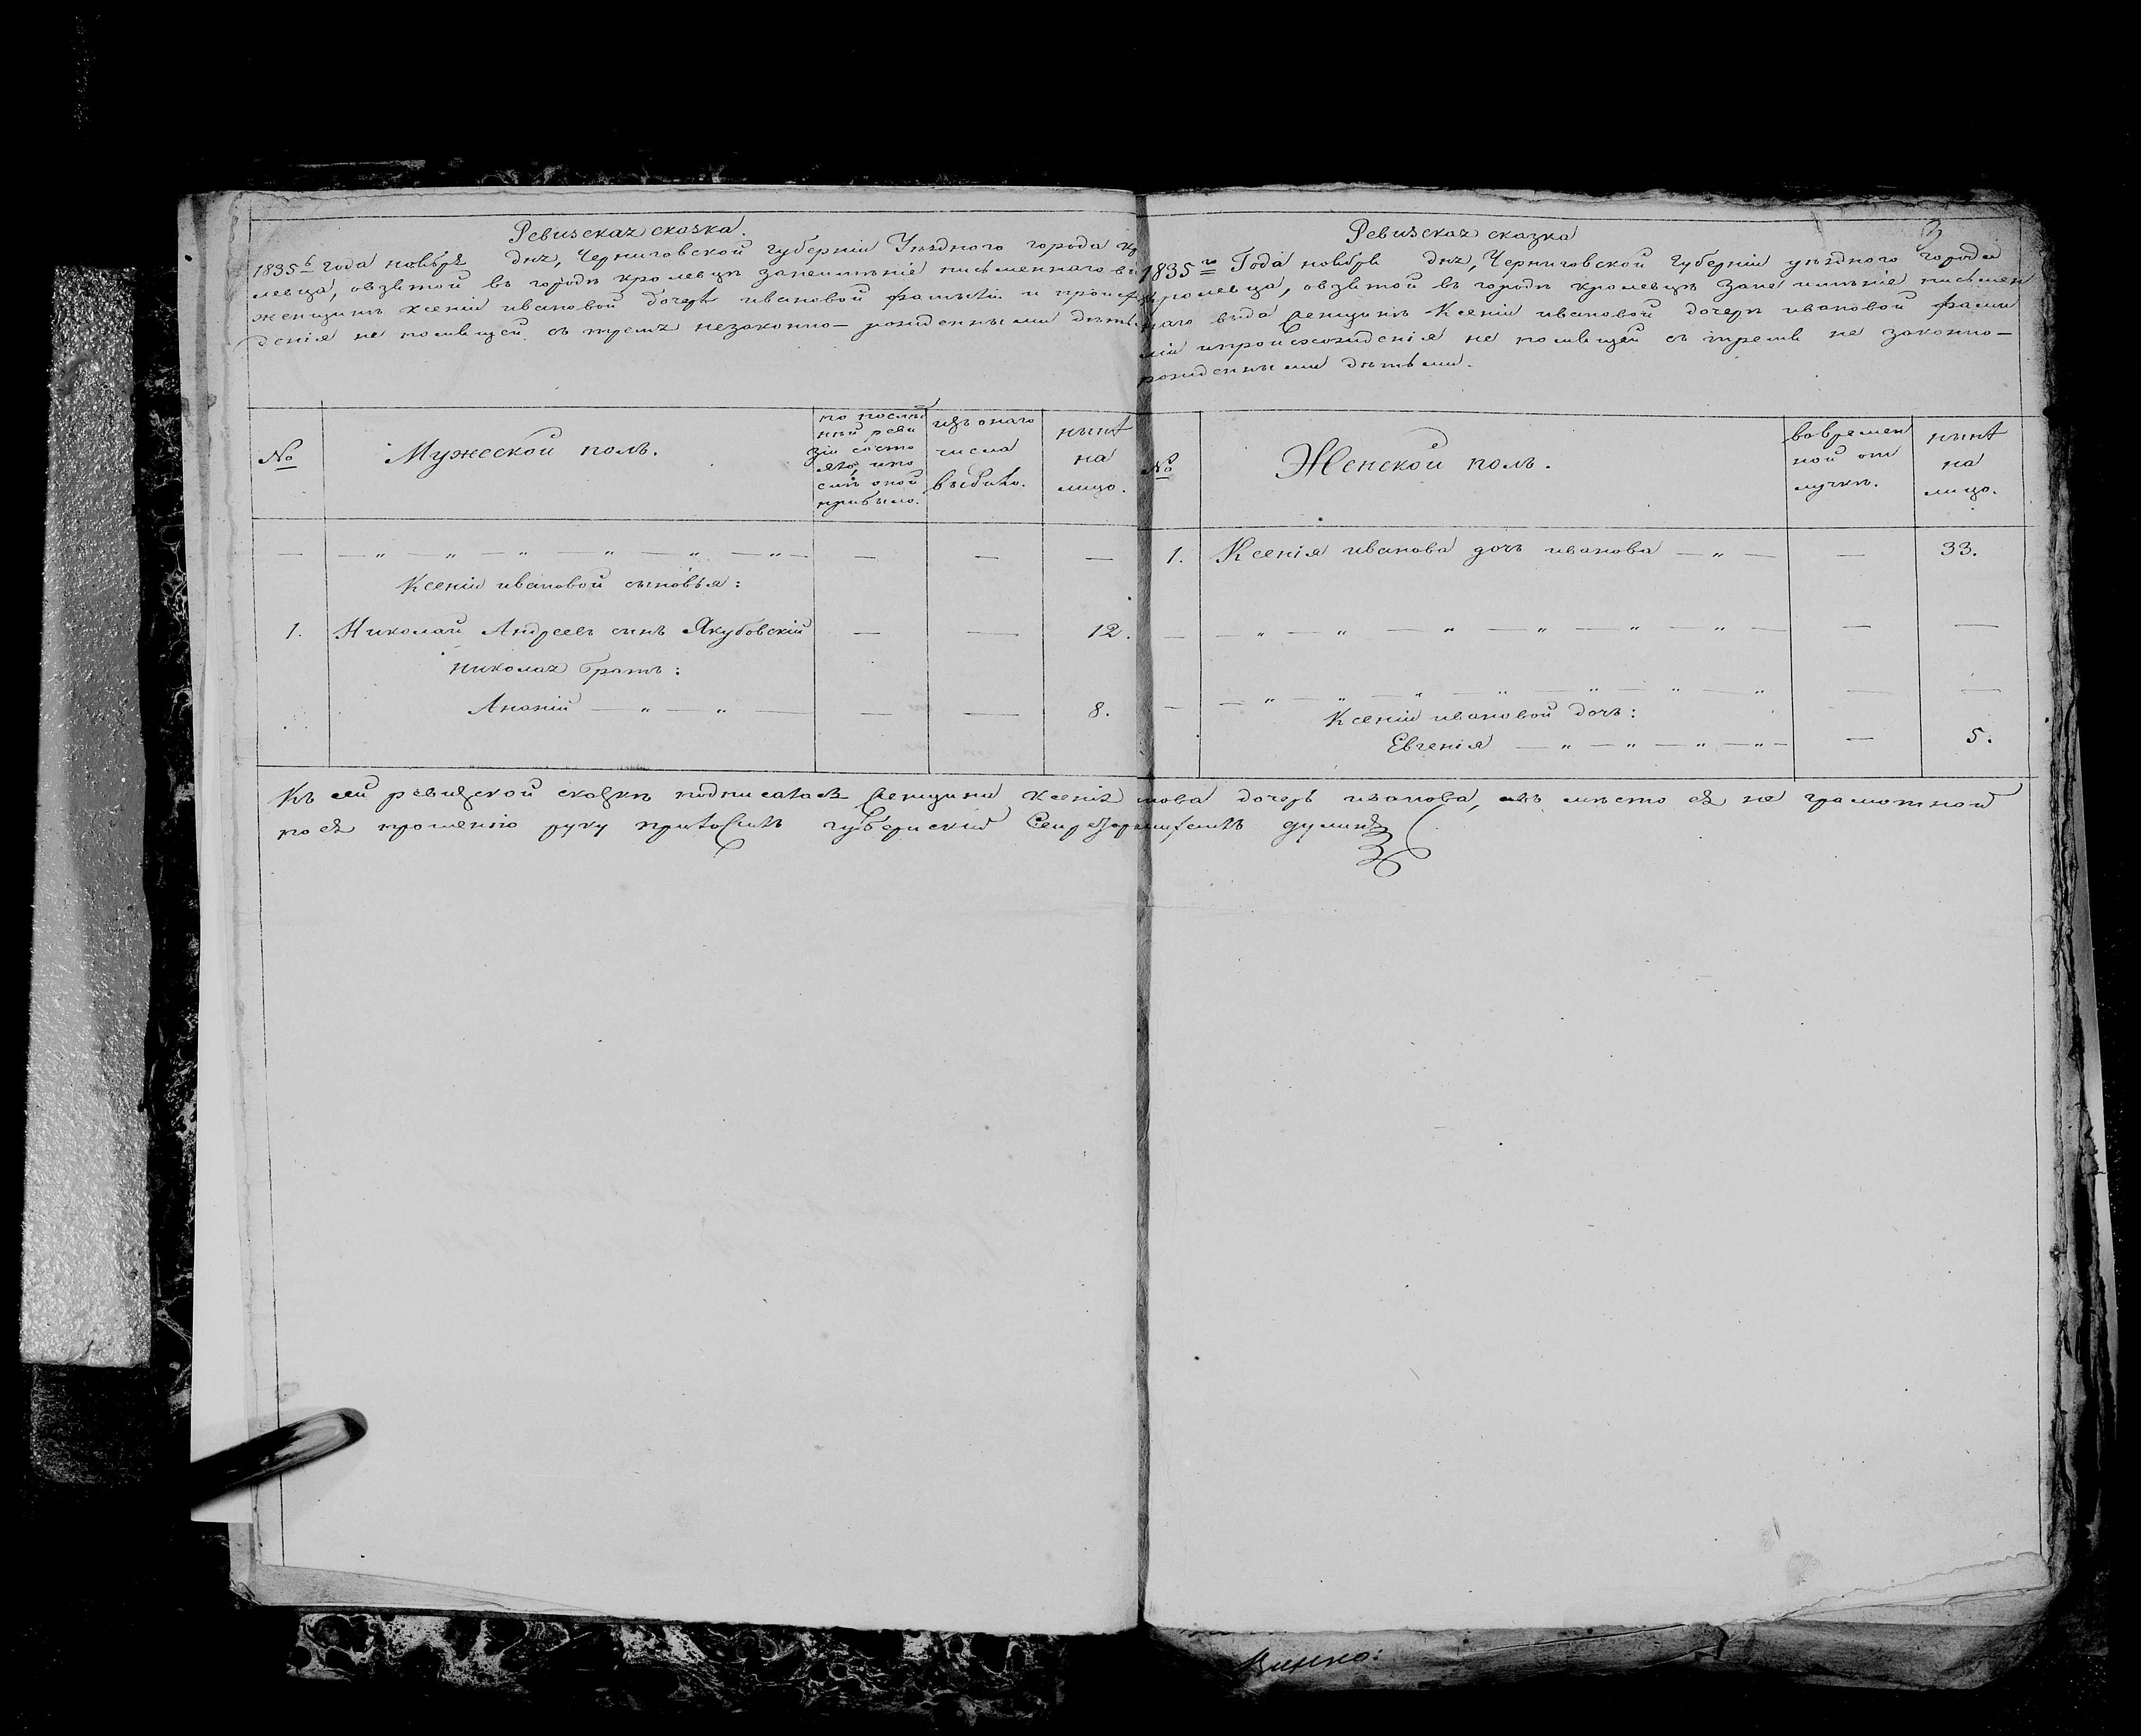 Ревизская сказка.
1835 года ноября дня, Черниговской губерніи Уѣзднаго города
левца, овзятой въ городѣ кролевцѣ занеимѣніе письменнаго
женщинѣ ксеніи ивановой дочерѣ ивановой фамиліи и
денія не помнящей съ тремя незаконно-рожденными
№
Мужеской полъ.
по послѣд
ней реви
зіи состо
яло, ипо
слѣ оной
прибыло.
изъ онаго
числа
выбыло.
нынѣ
на
лицо.
— — — — — — — — —
Ксеніи ивановой сыновья:
1. Николай Андреевъ сынъ Якубовскій — — 12.
николая братъ:
Ананій — — — — — 8.
Ревизская сказка
3
1835 го Года ноября дня, Черниговской Губерніи уѣзднаго города
кролевца, овзятой въ городѣ кролевцѣ зане имѣніе писмен
наго вида женщинѣ Ксеніи ивановой дочерѣ ивановой фами
ліи ипроисхожденія не помнящей съ тремя не законно-
рожденными дѣтьми.
№
Женской полъ.
вовремен
ной от
лучкѣ.
нынѣ
на
лицо.
1. Ксенія иванова дочь иванова — — — 33.
— — — — — — — — —
— — — — — — — — —
Ксеніи ивановой дочь:
Евгенія — — — — — 5.
Къ сей ревизской сказкѣ подписалася женщина ксенія дочерь иванова, авъ мѣсто ея не грамотной
поея прошенію руку приложилъ губернскій